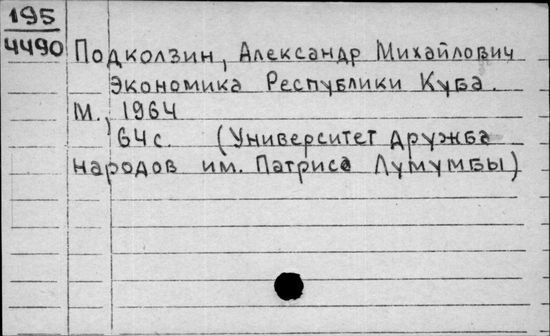 195
4490
Подколзин, Александр Михайлович
Экономика Республики Куба.
М., 1964
64с. (Университет дружба
народов им. Патриса Лумумбы)